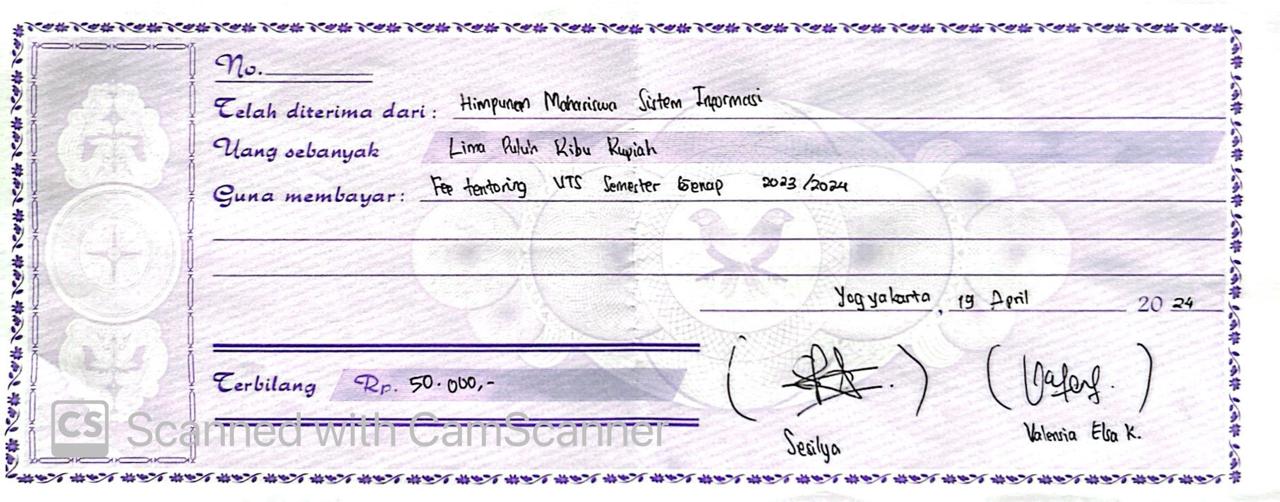 No.
Telah diterima dari : Himpunan Mahasiswa Sistem Informasi
Uang sebanyak Lima Puluh Ribu Rupiah
Guna membayar : Fee tentoring UTS Semester Genap 2023/2024
Yogyakarta, 19 April 2024
Terbilang Rp. 50.000,-
Sesilya
Valensia Elsa K.
CS Scanned with CamScanner